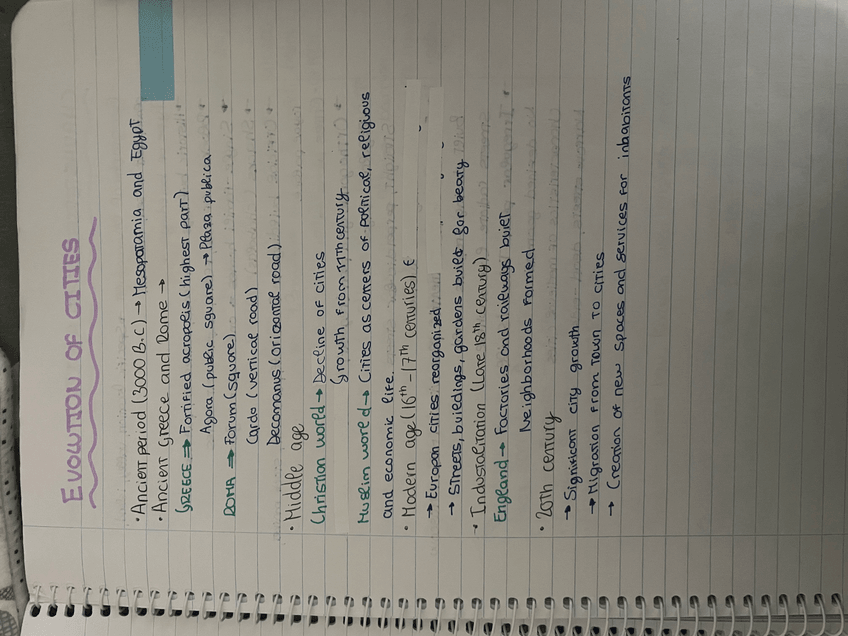 EVOLUTION OF CITIES
· Ancient period (3000 B.C) → Mesoparamia and Egypt
· Ancient Greece and Rome →
GREECE → Fortified acropolis (highest part)
Agora (public square) → Plaza publica
ROMA → Forum (square)
Cardo (vertical road)
Decomanus (orizontal road)
· Middle age
Christian world → Decline of cities
Growth from 11th century
Muslim world → Cities as centers of political, religious
and economic life.
· Modern age (16th - 17th centuries) €
→ Europan cities reorganized
→ Streets, buildings, gardens built for beaty
· Industalitation (Late 18th century)
England → Factories and railways built
Neighborhoods formed
· 20th century
→ Significant city growth
→ Migration from town to cities
→ Creation of new spaces and services for inhabitants